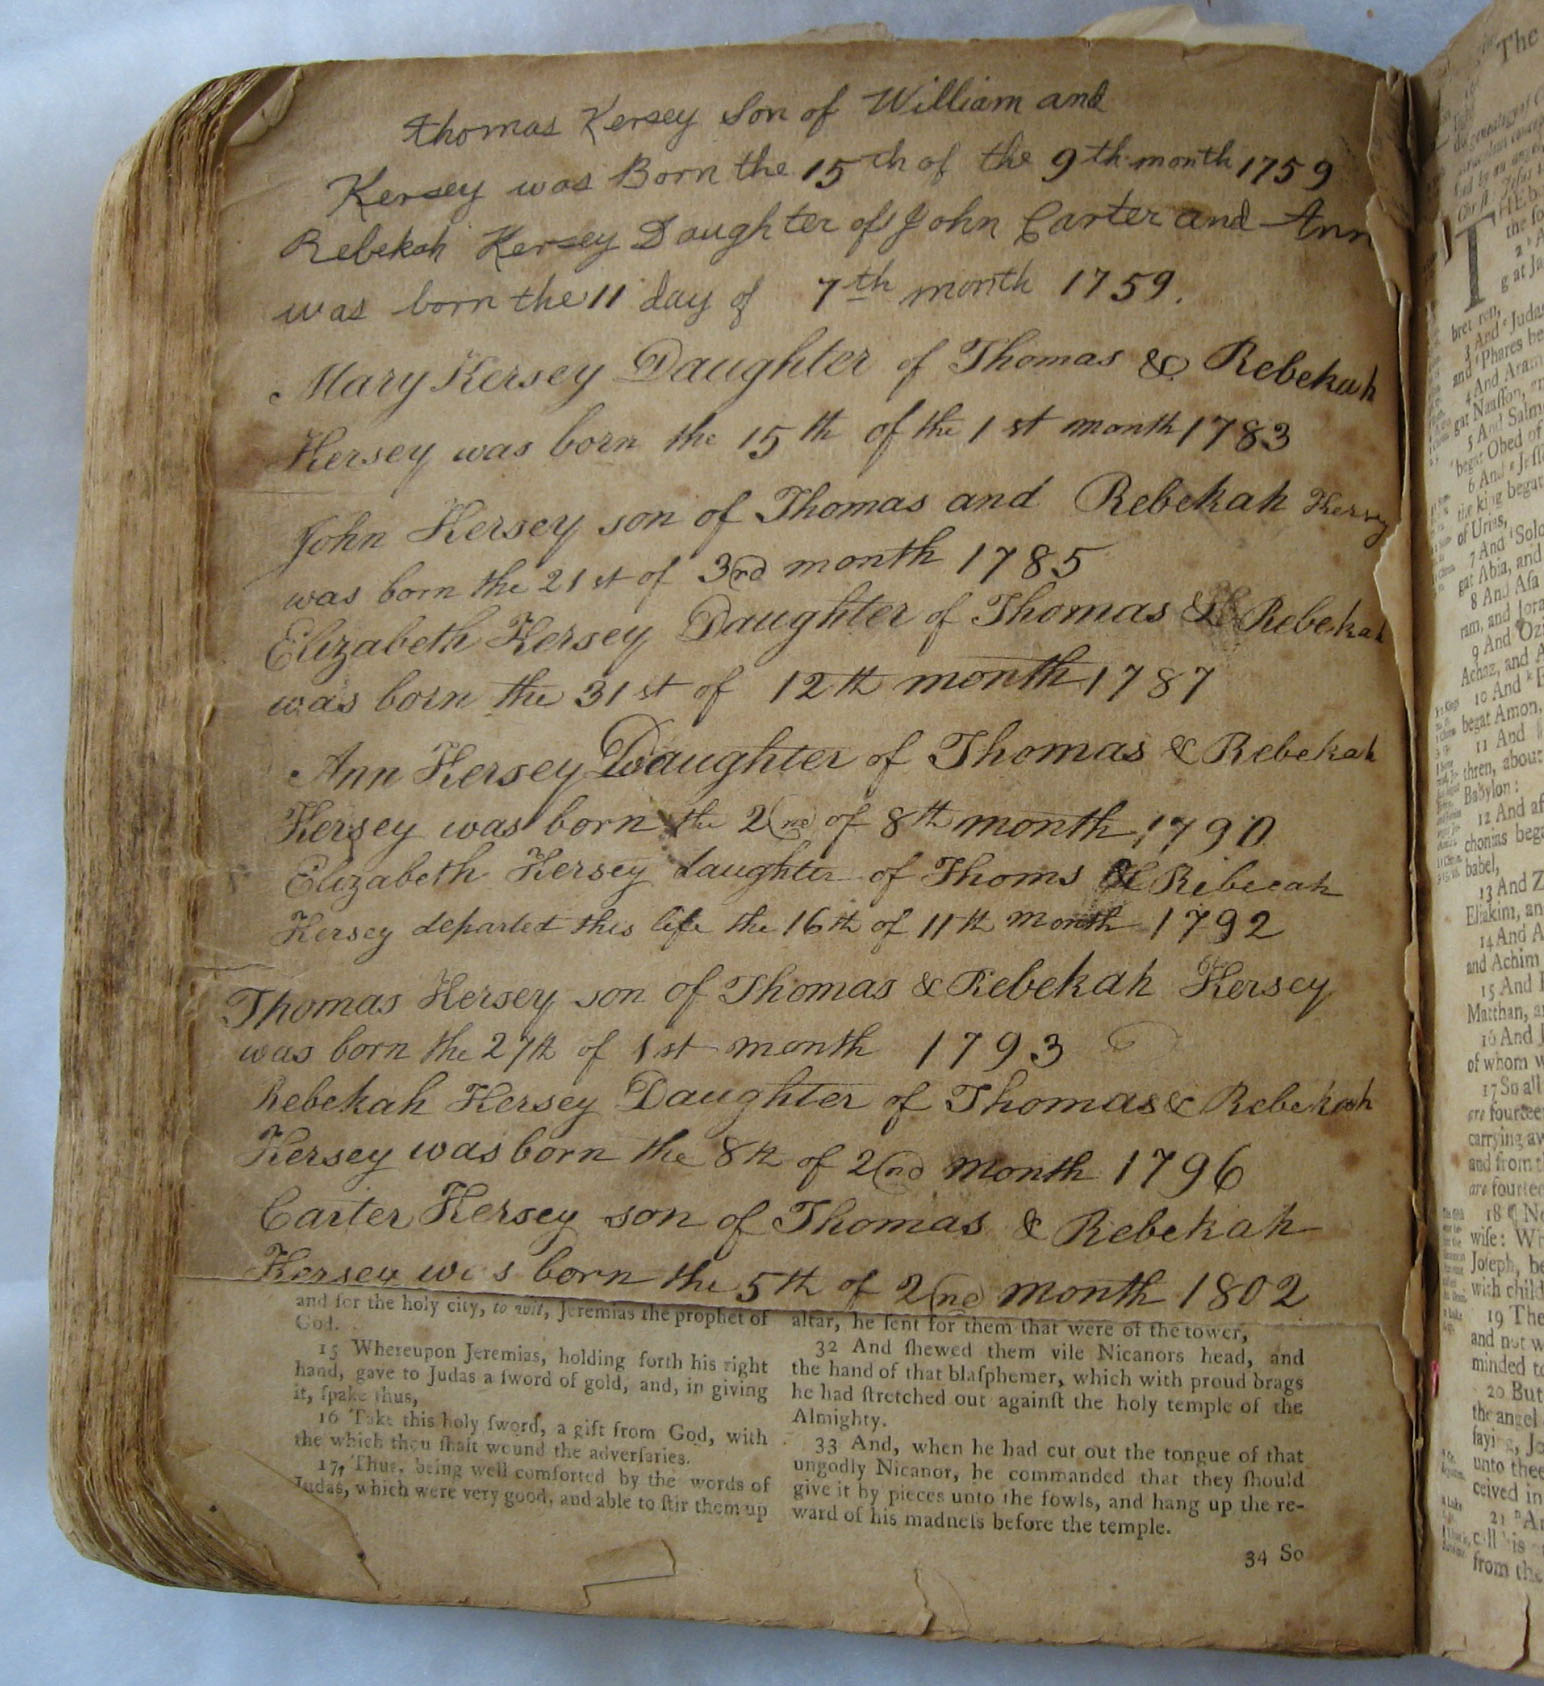 Thomas Kersey Son of William and
Kersey was Born the 15th of the 9th month 1759
Rebekah Kersey Daughter of John Carter and Ann
was born the 11 day of 7th month 1759.
Mary Kersey Daughter of Thomas & Rebekah
Kersey was born the 15th of the 1st month 1783
John Kersey son of Thomas and Rebekah Kersey
was born the 21st of 3rd month 1785
Elizabeth Kersey Daughter of Thomas & Rebekah
was born the 31st of 12th month 1787
Ann Kersey Daughter of Thomas & Rebekah
Kersey was born the 2nd of 8th month 1790
Elizabeth Kersey daughter of Thoms & Ribecah
Kersey departed this life the 16th of 11th month 1792
Thomas Kersey son of Thomas & Rebekah Kersey
was born the 27th of 1st month 1793
Rebekah Kersey Daughter of Thomas & Rebekah
Kersey was born the 8th of 2nd month 1796
Carter Kersey son of Thomas & Rebekah
Kersey was born the 5th of 2nd month 1802
and for the holy city, to wit, Jeremias the prophet of
God.
15 Whereupon Jeremias, holding forth his right
hand, gave to Judas a ſword of gold, and, in giving
it, ſpake thus,
16 Take this holy ſword, a gift from God, with
the which thou ſhalt wound the adverſaries.
17 Thus, being well comforted by the words of
Judas, which were very good, and able to ſtir them up
altar, he ſent for them that were of the tower,
32 And ſhewed them vile Nicanors head, and
the hand of that blaſphemer, which with proud brags
he had ſtretched out againſt the holy temple of the
Almighty.
33 And, when he had cut out the tongue of that
ungodly Nicanor, he commanded that they ſhould
give it by pieces unto the fowls, and hang up the re-
ward of his madneſs before the temple.
34 So
The
bret ren,
3 And Judas
and Phares be
4 And Aram
gat Naaſſon, 
5 And Salm
begat Obed of
6 And Jeſſe
the king begat
of Urias,
7 And Solo
gat Abia, and
8 And Aſa
ram, and Jora
9 And Ozi
Achaz, and A
10 And
begat Amon,
11 And
thren, about
Babylon:
12 And af
chonias bega
babel,
13 And Z
Eliakim, an
14 And A
and Achim
15 And
Matthan, a
16 And J
of whom w
17 So all
are fourtee
carrying aw
and from t
are fourtee
18 ¶ No
wife: W
Joſeph, be
with child
19 The
and not w
minded to
20 But
the angel
ſaying, Jo
unto thee
ceived in
21 An
call his
from the